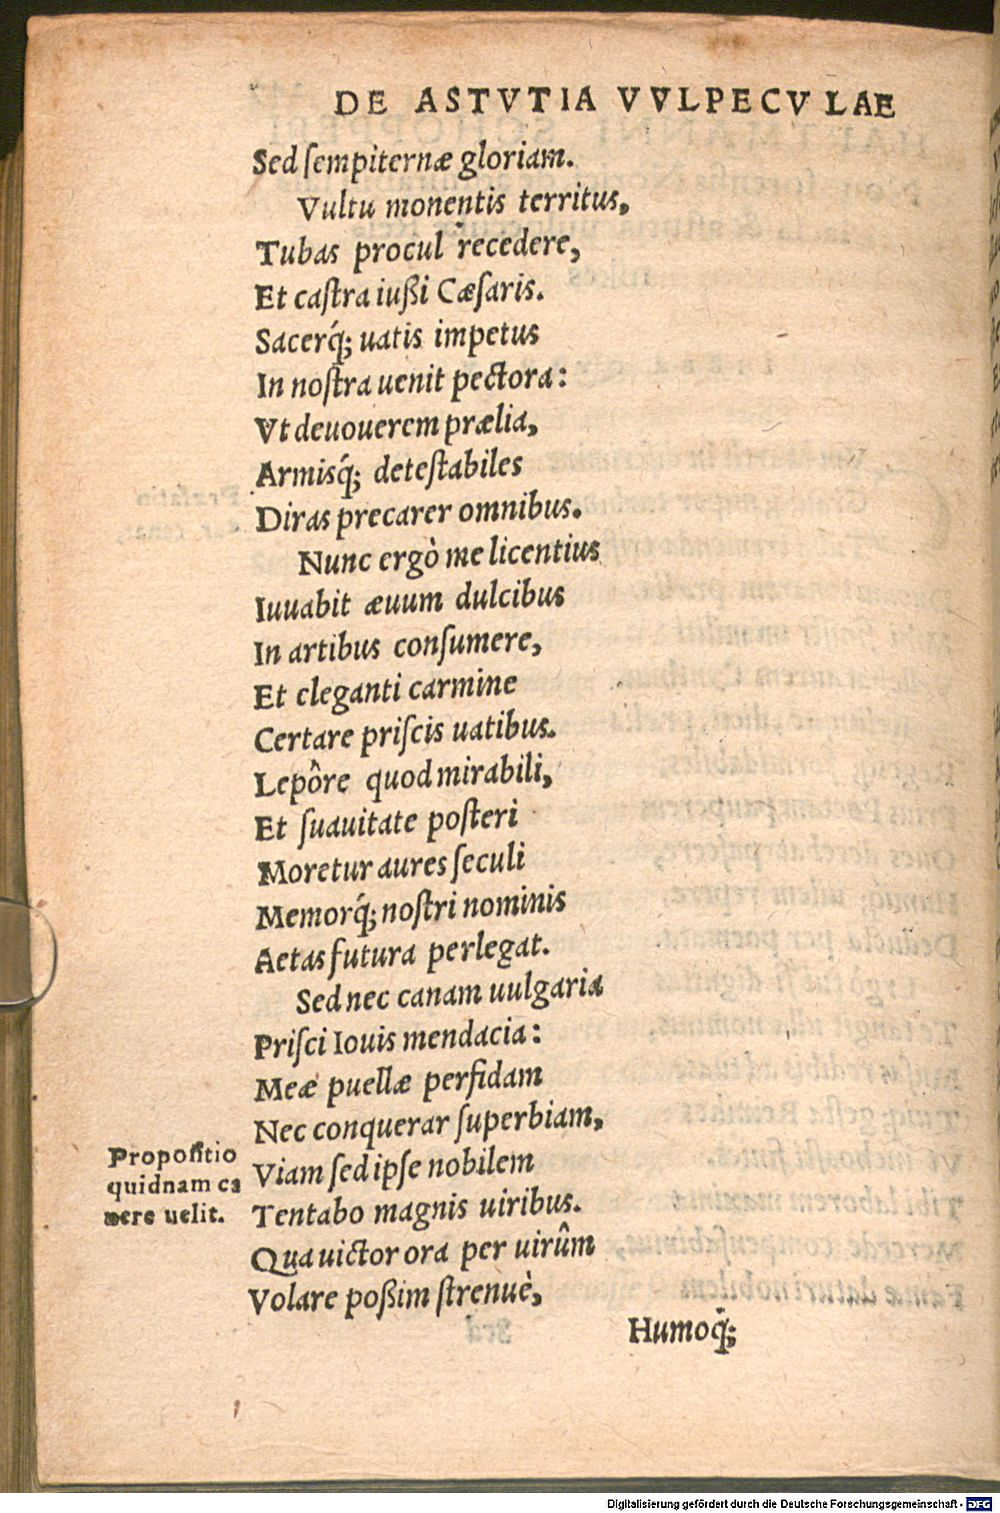 DE ASTVTIA VVLPECVLAE
Sed ſempiternæ gloriam.
Vultu monentis territus,
Tubas procul recedere,
Et caſtra iußi Cæſaris.
Sacerq́; uatis impetus
In noſtra uenit pectora:
Vt deuouerem prælia,
Armisq́; deteſtabiles
Diras precarer omnibus.
Nunc ergò me licentius
Iuuabit æuum dulcibus
In artibus conſumere,
Et eleganti carmine
Certare priſcis uatibus.
Lepôre quod mirabili,
Et ſuauitate poſteri
Moretur aures ſeculi
Memorq́; noſtri nominis
Aetas futura perlegat.
Sed nec canam uulgaria
Priſci Iouis mendacia:
Meæ puellæ perfidam
Nec conquerar ſuperbiam,
Propoſitio
quidnam ca
nere uelit.
Viam ſed ipſe nobilem
Tentabo magnis uiribus.
Qua uictor ora per uirûm
Volare poßim ſtrenuè,
Humoq́;
Digitalisierung gefördert durch die Deutsche Forschungsgemeinschaft - DFG